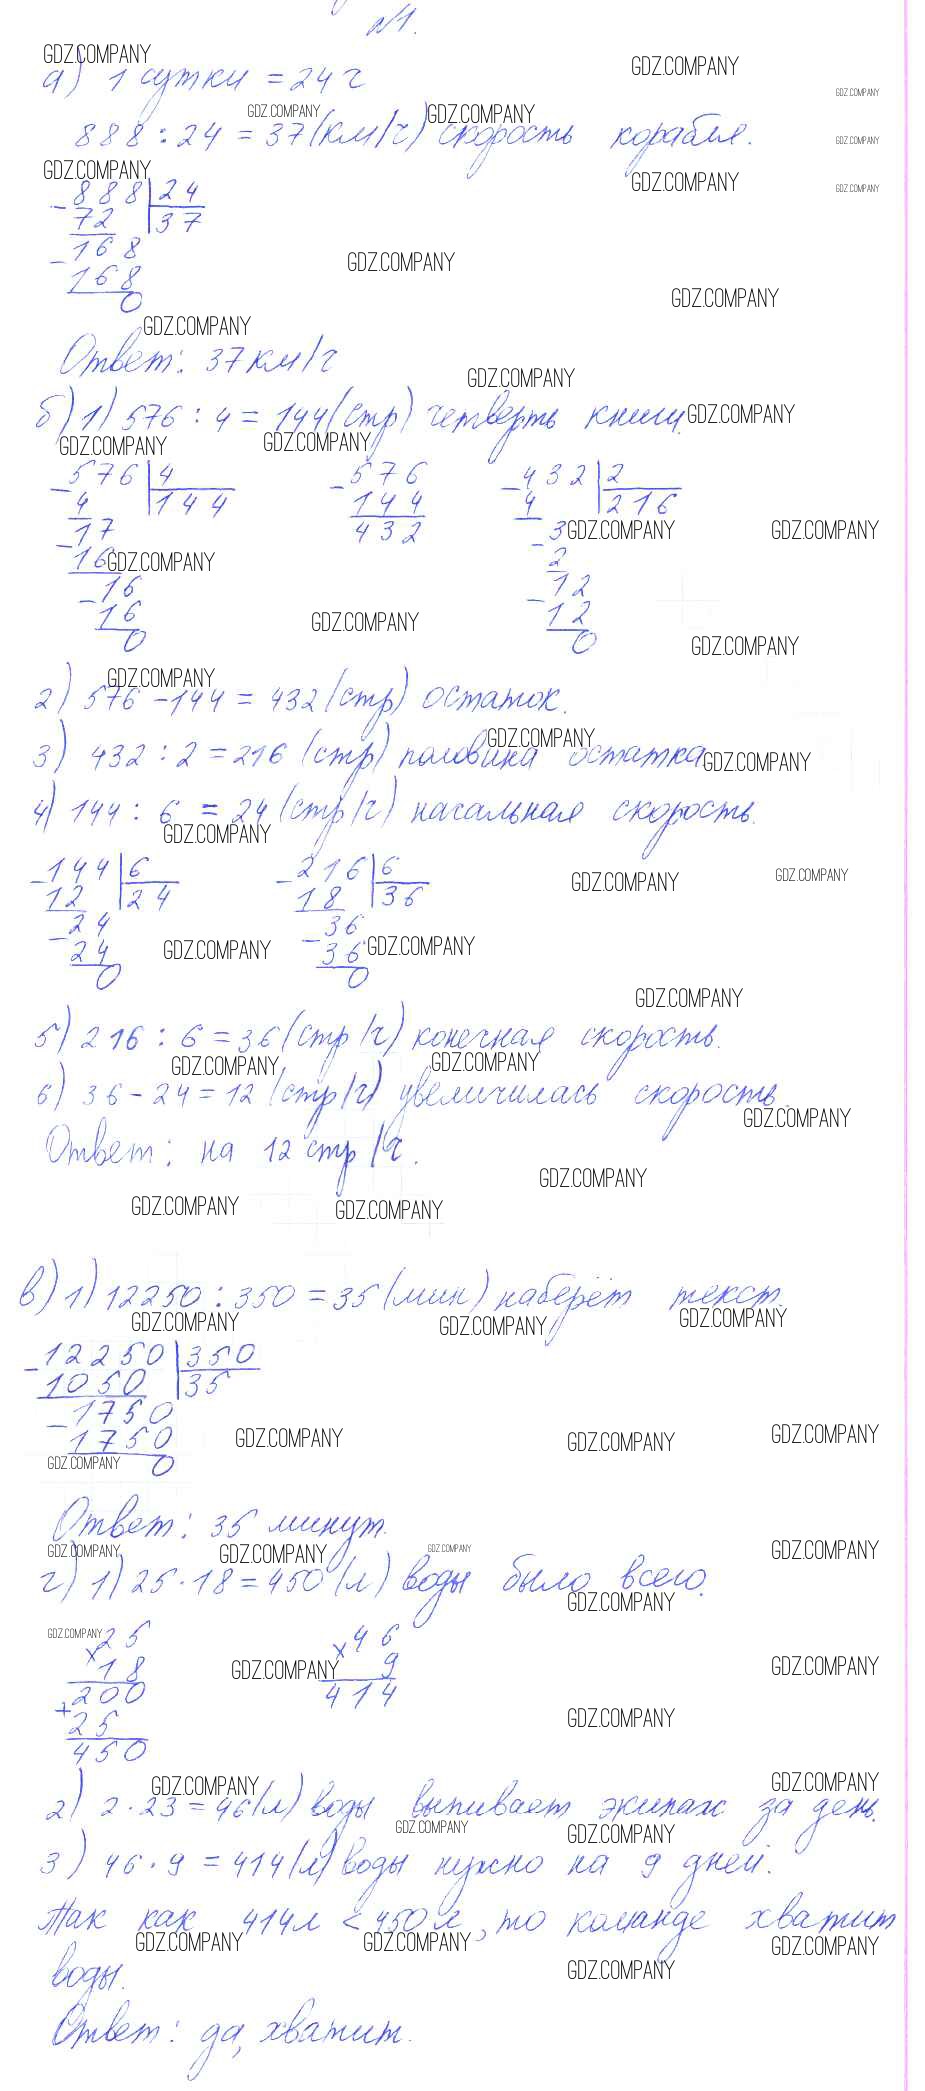 №1.
а) 1 сутки = 24 ч
888 : 24 = 37 (км/ч) скорость корабля.
- 888 | 24
72 | 37
- 168
168
0
Ответ: 37 км/ч
б) 1) 576 : 4 = 144 (стр) четверть книги.
- 576 | 4
4 | 144
- 17
16
- 16
16
0
- 576
144
432
- 432 | 2
4 | 216
- 3
2
- 12
12
0
2) 576 - 144 = 432 (стр) остаток.
3) 432 : 2 = 216 (стр) половина остатка
4) 144 : 6 = 24 (стр/ч) начальная скорость.
- 144 | 6
12 | 24
- 24
24
0
- 216 | 6
18 | 36
- 36
36
0
5) 216 : 6 = 36 (стр/ч) конечная скорость.
6) 36 - 24 = 12 (стр/ч) увеличилась скорость.
Ответ: на 12 стр/ч.
в) 1) 12250 : 350 = 35 (мин) наберёт текст.
- 12250 | 350
1050 | 35
- 1750
1750
0
Ответ: 35 минут.
г) 1) 25 · 18 = 450 (л) воды было всего.
× 25
18
+ 200
25
450
× 46
9
414
2) 2 · 23 = 46 (л) воды выпивает экипаж за день.
3) 46 · 9 = 414 (л) воды нужно на 9 дней.
Так как 414 л < 450 л, то команде хватит
воды.
Ответ: да, хватит.
GDZ.COMPANY